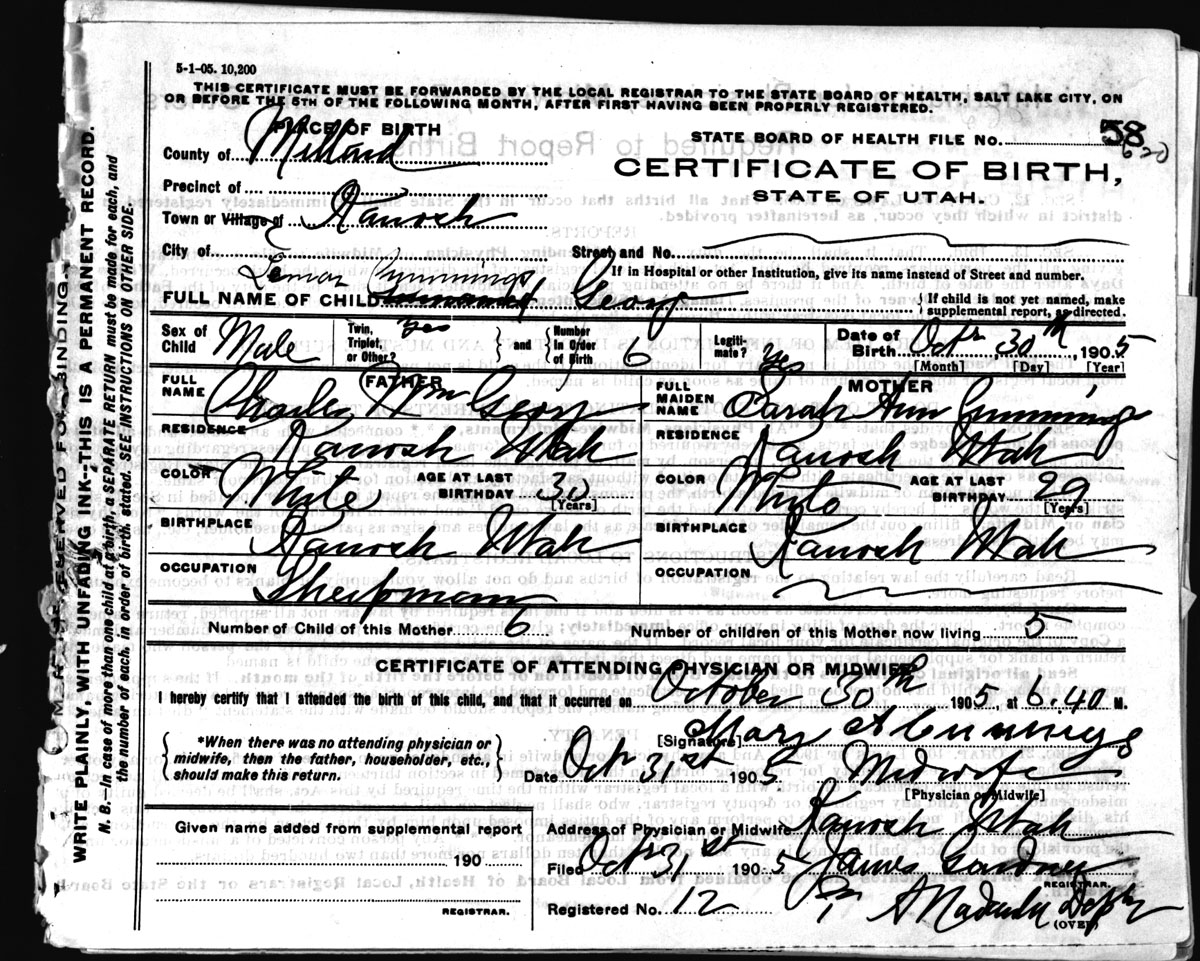 5-1-05. 10,200
THIS CERTIFICATE MUST BE FORWARDED BY THE LOCAL REGISTRAR TO THE STATE BOARD OF HEALTH, SALT LAKE CITY, ON
OR BEFORE THE 5TH OF THE FOLLOWING MONTH, AFTER FIRST HAVING BEEN PROPERLY REGISTERED.
PLACE OF BIRTH
County of Millard
Precinct of
Town or Village of Kanosh
City of
STATE BOARD OF HEALTH FILE No. 58
CERTIFICATE OF BIRTH,
STATE OF UTAH.
Street and No.
If in Hospital or other Institution, give its name instead of Street and number.
Lemon Cummings
FULL NAME OF CHILD George
If child is not yet named, make
supplemental report, as directed.
Sex of Child Male
Twin, Triplet, or Other? Yes
and
Number in Order of Birth 6
Legitimate? Yes
Date of Birth Octr 30th, 1905
[Month] [Day] [Year]
FATHER
FULL NAME Charles Wm George
RESIDENCE Kanosh Utah
COLOR White AGE AT LAST BIRTHDAY 30 [Years]
BIRTHPLACE Kanosh Utah
OCCUPATION Sheepman
MOTHER
FULL MAIDEN NAME Sarah Ann Cummings
RESIDENCE Kanosh Utah
COLOR White AGE AT LAST BIRTHDAY 29 [Years]
BIRTHPLACE Kanosh Utah
OCCUPATION
Number of Child of this Mother 6 Number of children of this Mother now living 5
CERTIFICATE OF ATTENDING PHYSICIAN OR MIDWIFE
I hereby certify that I attended the birth of this child, and that it occurred on October 30th 1905 at 6.40 M.
*When there was no attending physician or
midwife, then the father, householder, etc.,
should make this return.
[Signature] Mary A Cummings
Date Oct 31st 1905 Midwife
[Physician or Midwife]
Given name added from supplemental report
190
REGISTRAR.
Address of Physician or Midwife Kanosh Utah
Filed Octr 31st 1905 James Gardner
REGISTRAR.
Registered No. 12
(OVER)
MARGIN RESERVED FOR BINDING
WRITE PLAINLY, WITH UNFADING INK--THIS IS A PERMANENT RECORD.
N. B.—In case of more than one child at a birth, a SEPARATE RETURN must be made for each, and
the number of each, in order of birth, stated. SEE INSTRUCTIONS ON OTHER SIDE.